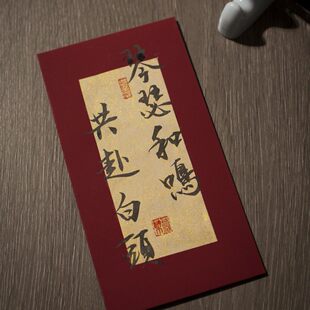 琴瑟和鸣
共赴白頭